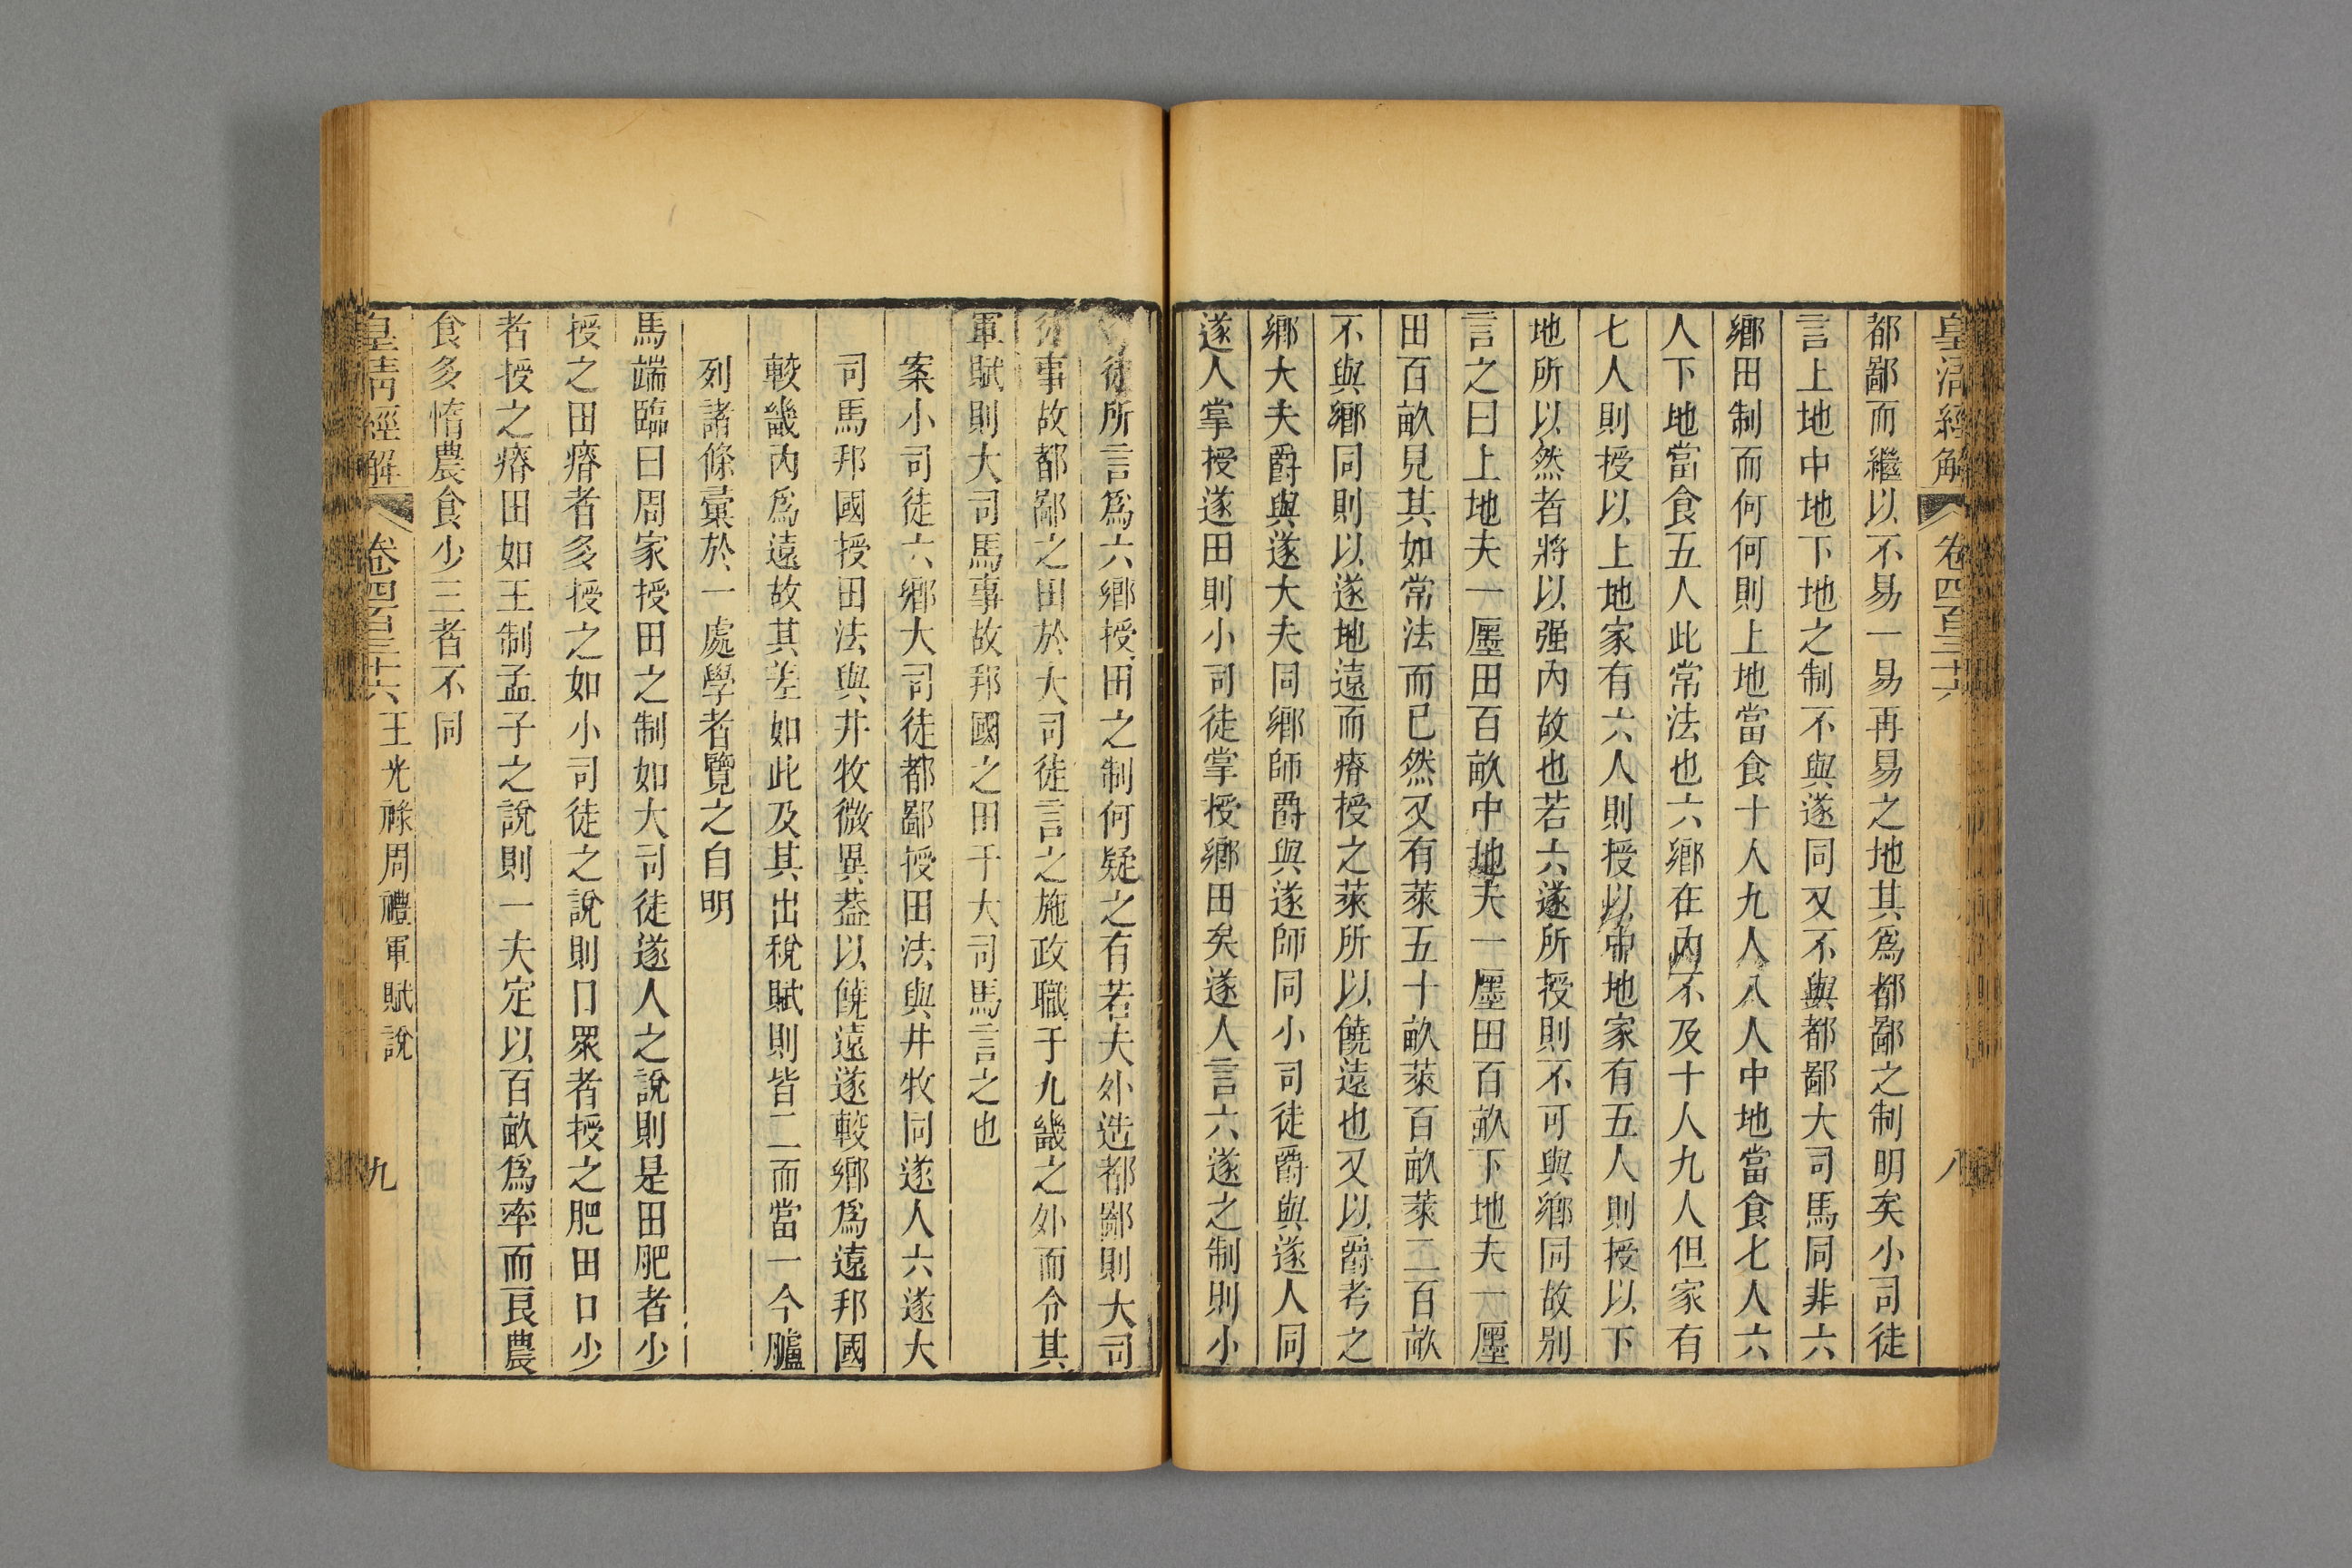 皇清經解 卷四百三十六 八
都鄙而繼以不易一易再易之地其爲都鄙之制明矣小司徒
言上地中地下地之制不與遂同又不與都鄙大司馬同非六
鄉田制而何何則上地當食十人九人八人中地當食七人六
人下地當食五人此常法也六鄉在內不及十人九人但家有
七人則授以上地家有六人則授以中地家有五人則授以下
地所以然者將以强內故也若六遂所授則不可與鄉同故別
言之曰上地夫一廛田百畝中地夫一廛田百畝下地夫一廛
田百畝見其如常法而已然又有萊五十畝萊百畝萊二百畝
不與鄉同則以遂地遠而瘠授之萊所以饒遠也又以爵考之
鄉大夫爵與遂大夫同鄉師爵與遂師同小司徒爵與遂人同
遂人掌授遂田則小司徒掌授鄉田矣遂人言六遂之制則小
徒所言爲六鄉授田之制何疑之有若夫外造都鄙則大司
事故都鄙之田於大司徒言之施政職于九畿之外而令其
軍賦則大司馬事故邦國之田于大司馬言之也
案小司徒六鄉大司徒都鄙授田法與井牧同遂人六遂大
司馬邦國授田法與井牧微異葢以饒遠遂較鄉爲遠邦國
較畿內爲遠故其差如此及其出稅賦則皆二而當一今臚
列諸條彙於一處學者覽之自明
馬端臨曰周家授田之制如大司徒遂人之說則是田肥者少
授之田瘠者多授之如小司徒之說則口眾者授之肥田口少
者授之瘠田如王制孟子之說則一夫定以百畝爲率而良農
食多惰農食少三者不同
皇清經解 卷四百三十六 王光祿周禮軍賦說 九